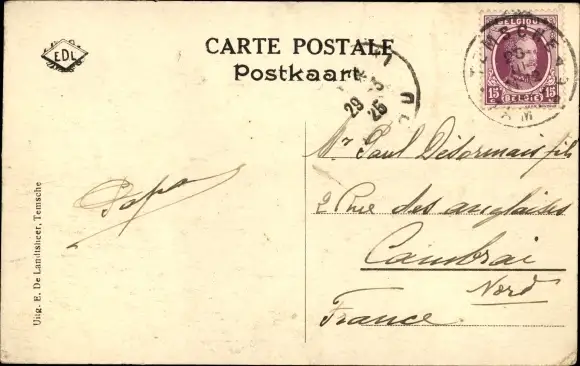 EDL
CARTE POSTALE
Postkaart
BELGIQUE
15 15
BELGIË
TEMSCHE
29
26
Mr Paul Désormais fils
2 Rue des anglaises
Cambrai
Nord
France
Papa
Uitg. E. De Landtsheer, Temsche